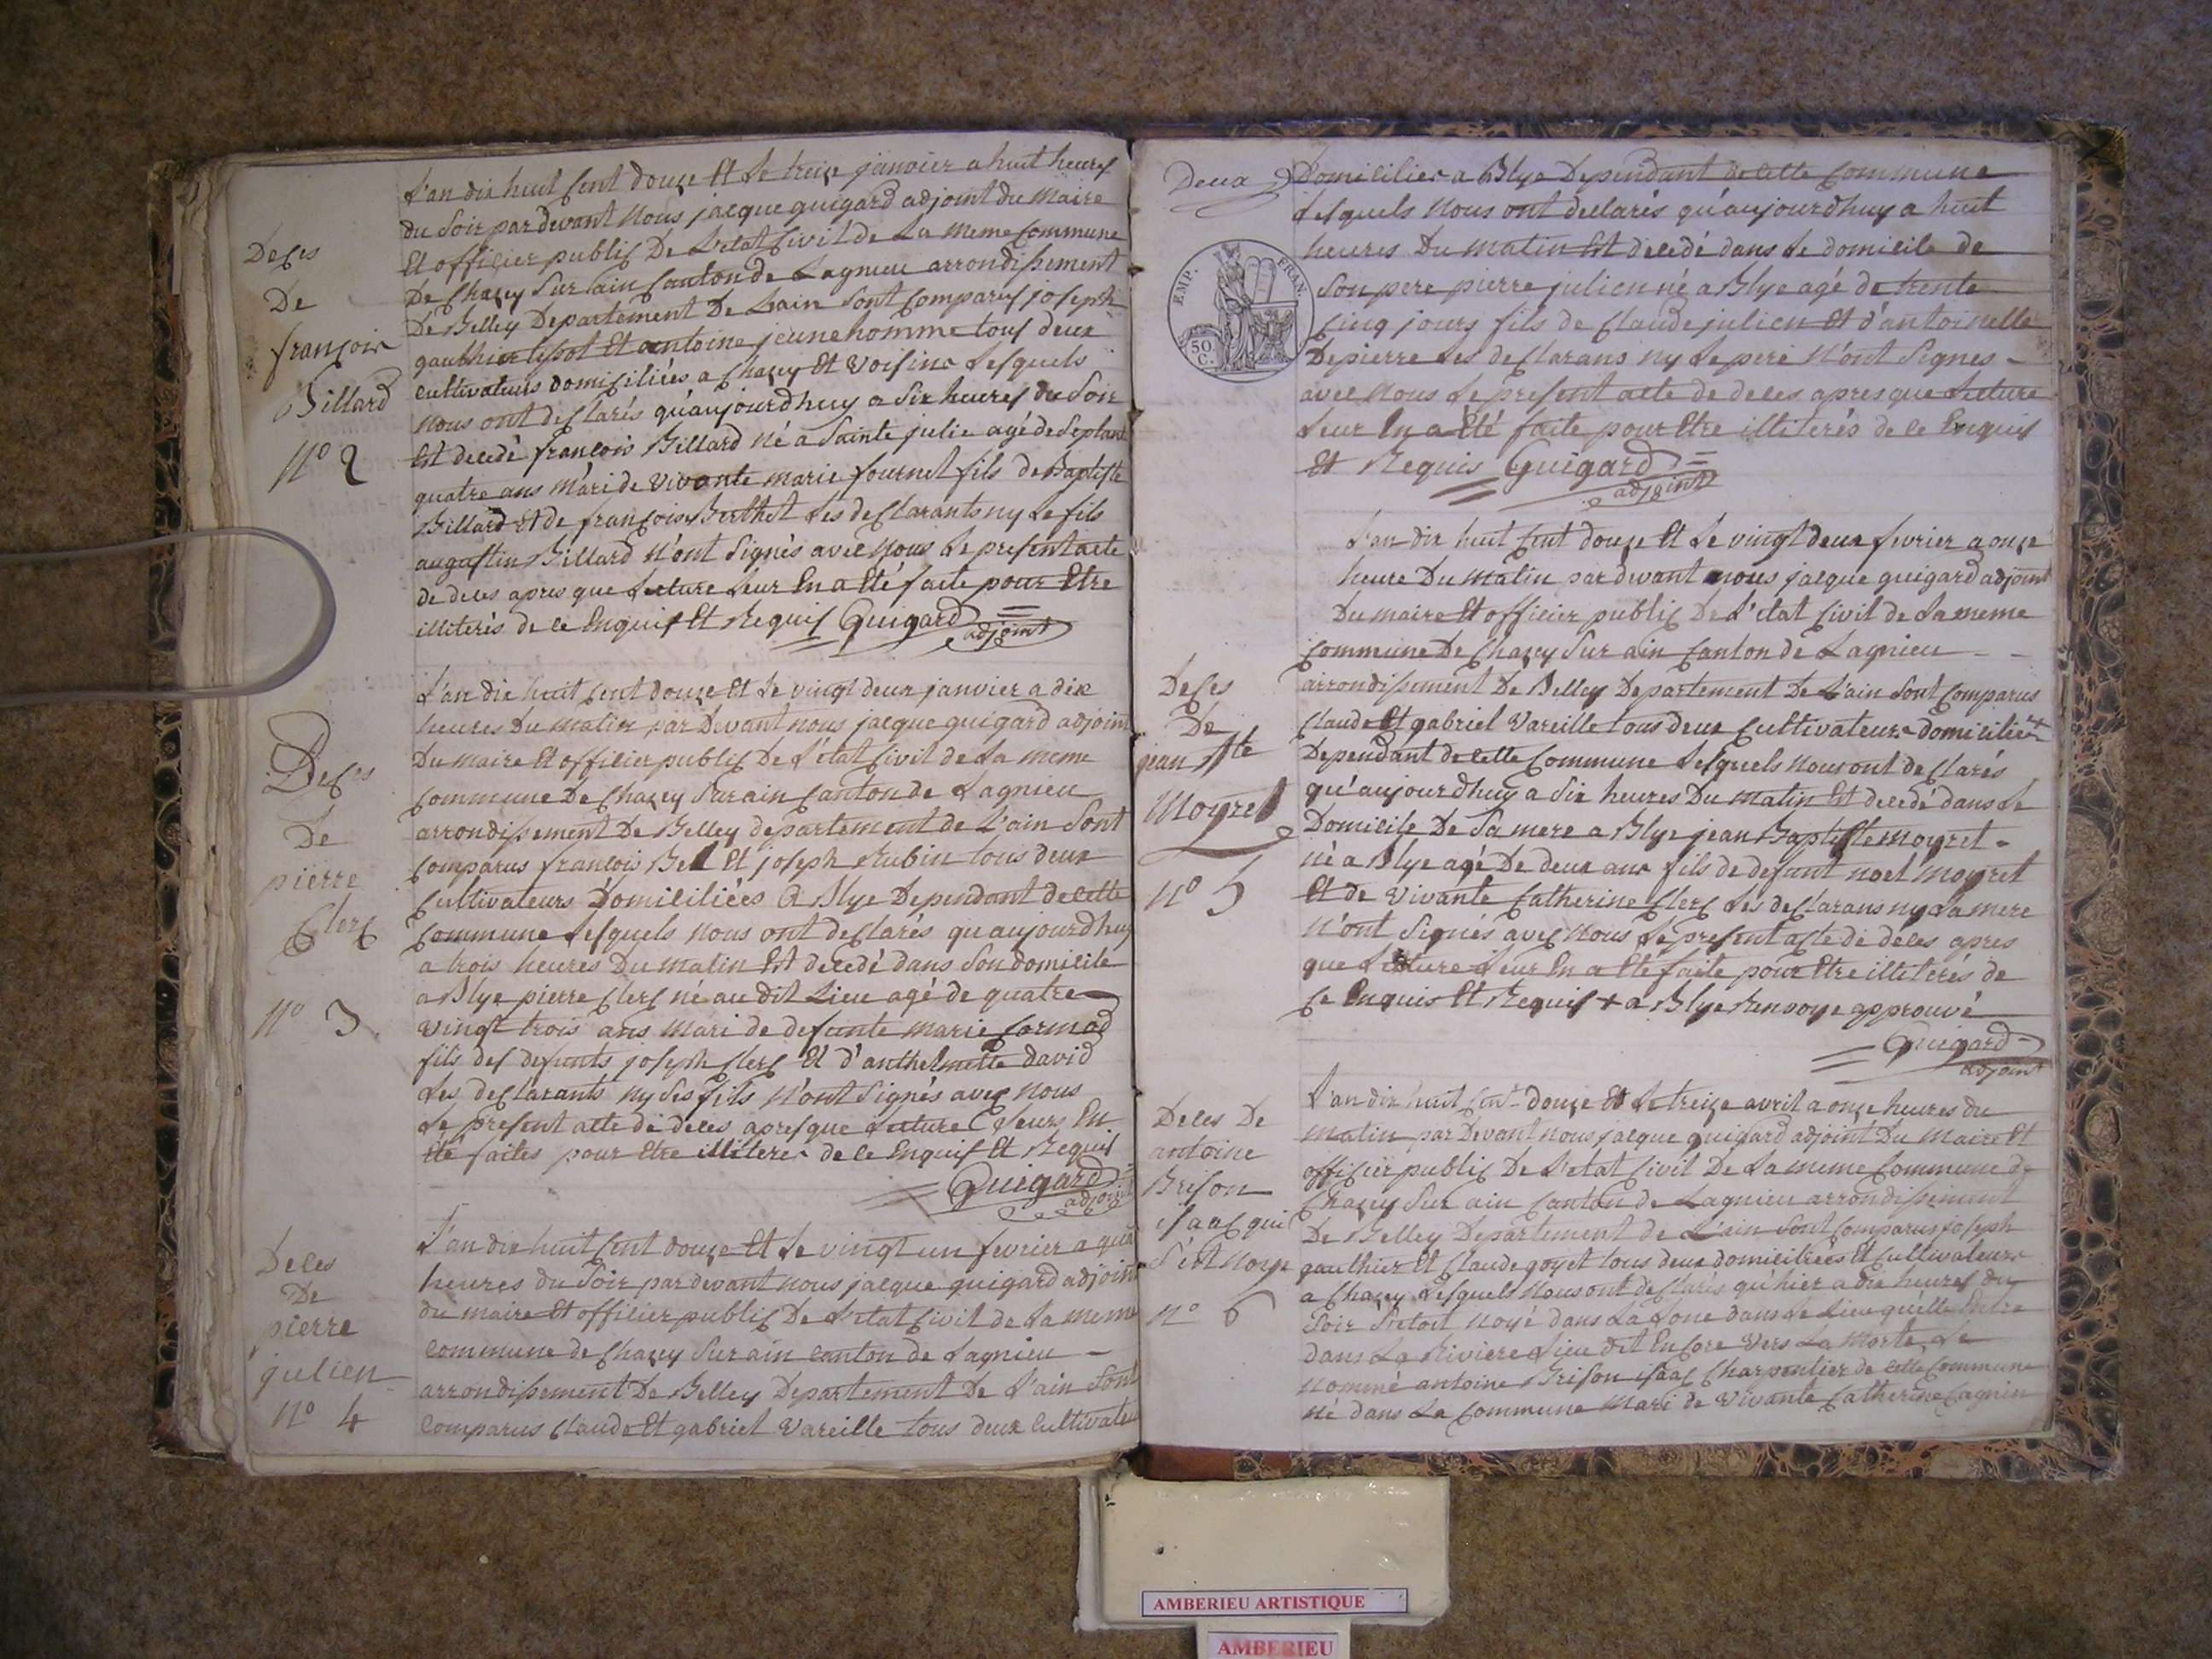 Deces
De
françois
Billard
N° 2
L'an dix huit cent douze Et Le treize janvier a huit heures
du Soir par devant Nous jacque guigard adjoint du Maire
Et officier public De L'etat Civil de La meme Commune
De Chazey Sur ain Canton de Lagnieu arrondissement
De Belley Departement De Lain Sont Comparus joseph
gauthier Et antoine jeune homme tous deux
Cultivateurs domiciliées a Chazey Et Voisins Lesquels
Nous ont declarés qu'aujourdhuy a Six heures du Soir
Est decedé françois Billard Né a Sainte julie agé de Septante
quatre ans Mari de Vivante Marie fournet fils de Baptiste
Billard Et de françoise Berthet Les declarants ny Le fils
augustin Billard N'ont Signés avec Nous Le present acte
de deces apres que Lecture Leur En a Eté faite pour Etre
illiterés de ce Enquis Et Requis Guigard
adjoint
Deces
De
pierre
Clerc
N° 3
L'an dix huit Cent douze Et Le vingt deux janvier a dix
heures Du Matin par Devant nous jacque guigard adjoint
Du Maire Et officier public De L'état Civil de La meme
Commune De Chazey Sur ain Canton de Lagnieu
arrondissement De Belley departement de L'ain Sont
Comparus françois Bel Et joseph Rubin tous deux
Cultivateurs Domiciliées a Blye Dependant de cette
Commune Lesquels Nous ont declarés qu aujourdhuy
a trois heures Du Matin Est decedé dans Son domicile
a Blye pierre Clerc né au dit Lieu agé de quatre
vingt trois ans Mari de defunte Marie Cormod
fils des defunts joseph Clerc Et d'anthelmette david
Les declarants ny Ses fils N'ont Signés avec Nous
Le present acte de deces apres que Lecture Leurs En
Eté faites pour Etre illiteres de ce Enquis Et Requis
Guigard
adjoint
Deces
De
pierre
julien
N° 4
L'an dix huit Cent douze Et Le vingt un fevrier a
heures du Soir par devant nous jacque guigard adjoint
du maire Et officier public De L'etat Civil de La meme
Commune de Chazey Sur ain canton de Lagnieu
arrondissement De Belley Departement De L'ain Sont
Comparus Claude Et gabriel Vareille tous deux Cultivateu
Deux
Domicilies a Blye Dependant de Cette Commune
Lesquels Nous ont declarés qu'aujourdhuy a huit
heures Du Matin Est decedé dans Le domicile de
Son pere pierre julien né a Blye agé de trente
Cinq jours fils de Claude julien Et d'antoinette
Depierre Les declarans ny Le pere N'ont Signes
avec Nous Le present acte de deces apres que Lecture
Leur En a Eté faite pour Etre illiterés de ce Enquis
Et Requis Guigard
adjoint
EMP. FRAN.
50 C.
Deces
De
jean Bte
Moyret
N° 5
L'an dix huit Cent douze Et Le vingt deux fevrier a onze
heure Du Matin par devant nous jacque guigard adjoint
Du maire Et officier public De L'etat Civil de La meme
Commune De Chazey Sur ain Canton de Lagnieu
arrondissement De Belley Departement De L'ain Sont Comparus
Claude Et gabriel Vareille tous deux Cultivateurs domiciliés +
Dependant de cette Commune Lesquels Nous ont declarés
qu'aujourdhuy a Six heures Du Matin Est decedé dans Le
Domicile De Sa mere a Blye jean Baptiste moyret
né a Blye agé De deux ans fils de defunt noel moyret
Et de Vivante Catherine Clerc Les declarans ny La mere
N'ont Signés avec Nous Le present acte de déces apres
que Lecture Leur En a Eté faite pour Etre illiterés de
Ce Enquis Et Requis + a Blye Renvoye approuvé
Guigard
adjoint
Deces De
antoine
Brison
isaac qui
S'est Noye
N° 6
L'an dix huit Cent douze Et Le treize avril a onze heures du
Matin par Devant Nous jacque guigard adjoint Du Maire Et
officier public De L'etat Civil De La meme Commune de
Chazey Sur ain Canton de Lagnieu arrondissement
De Belley Departement de L'ain Sont Comparus joseph
gauthier Et Claude goyet tous deux domiciliées Et Cultivateurs
a Chazey Lesquels Nous ont declarés qu'hier a dix heures du
Soir S'etoit Noyé dans La Lone dans Le Lieu qu'elle Entre
dans La Riviere Lieu dit Encore Vers La Morte Le
Nommé antoine Brison isaac Charpentier de cette Commune
Né dans La Commune Mari de Vivante Catherine Cagnin
AMBERIEU ARTISTIQUE
AMBERIEU